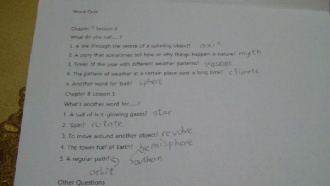 Word Quiz
Chapter 7 Lesson 2
What do you call.....?
1. A line through the center of a spinning object? axis
2. A story that sometimes tell how or why things happen in nature? myth
3. Times of the year with different weather patterns? season
4. The pattern of weather in a certain place over a long time? climate
5. Another word for 'ball' sphere
Chapter 8 Lesson 1
What's another word for.....?
1. A ball of hot glowing gases? star
2. Spin? rotate
3. To move around another object? revolve
4. The lower half of Earth? hemisphere
Southern
5. A regular path?
orbit
Other Questions